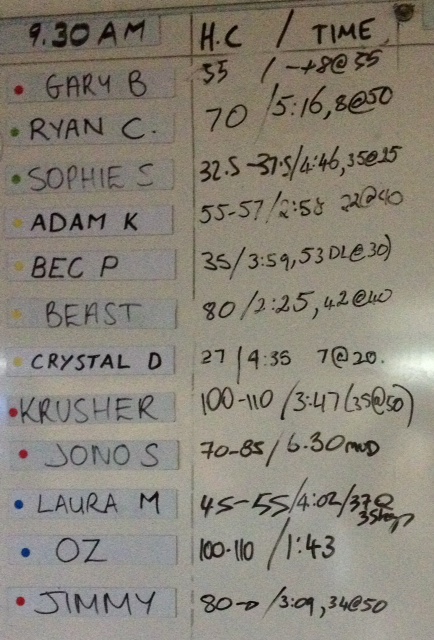 9.30 AM H.C / TIME
GARY B 55 / -+8@55
RYAN C. 70 /5:16,8@50
SOPHIE S 32.5-37.5/4:46,35@25
ADAM K 55-57/2:58 22@40
BEC P 35/3:59,53DL@30)
BEAST 80/2:25,42@40
CRYSTAL D 27/4:35 7@20.
KRUSHER 100-110/3:47(35@50)
JONO S 70-85/6.30
LAURA M 45-55/4:02/37@
OZ 100-110/1:43
JIMMY 80-/3:09,34@50